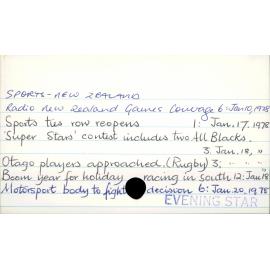 SPORTS - NEW ZEALAND
Radio New Zealand Games Coverage 6: Jan 10, 1978
Sports ties row reopens 1: Jan. 17. 1978
'Super Stars' contest includes two All Blacks.
3. Jan. 18, "
Otago players approached. (Rugby) 3; " " "
Boom year for holiday racing in South 12: Jan 18
Motorsport body to fight decision 6: Jan. 20. 1978
EVENING STAR